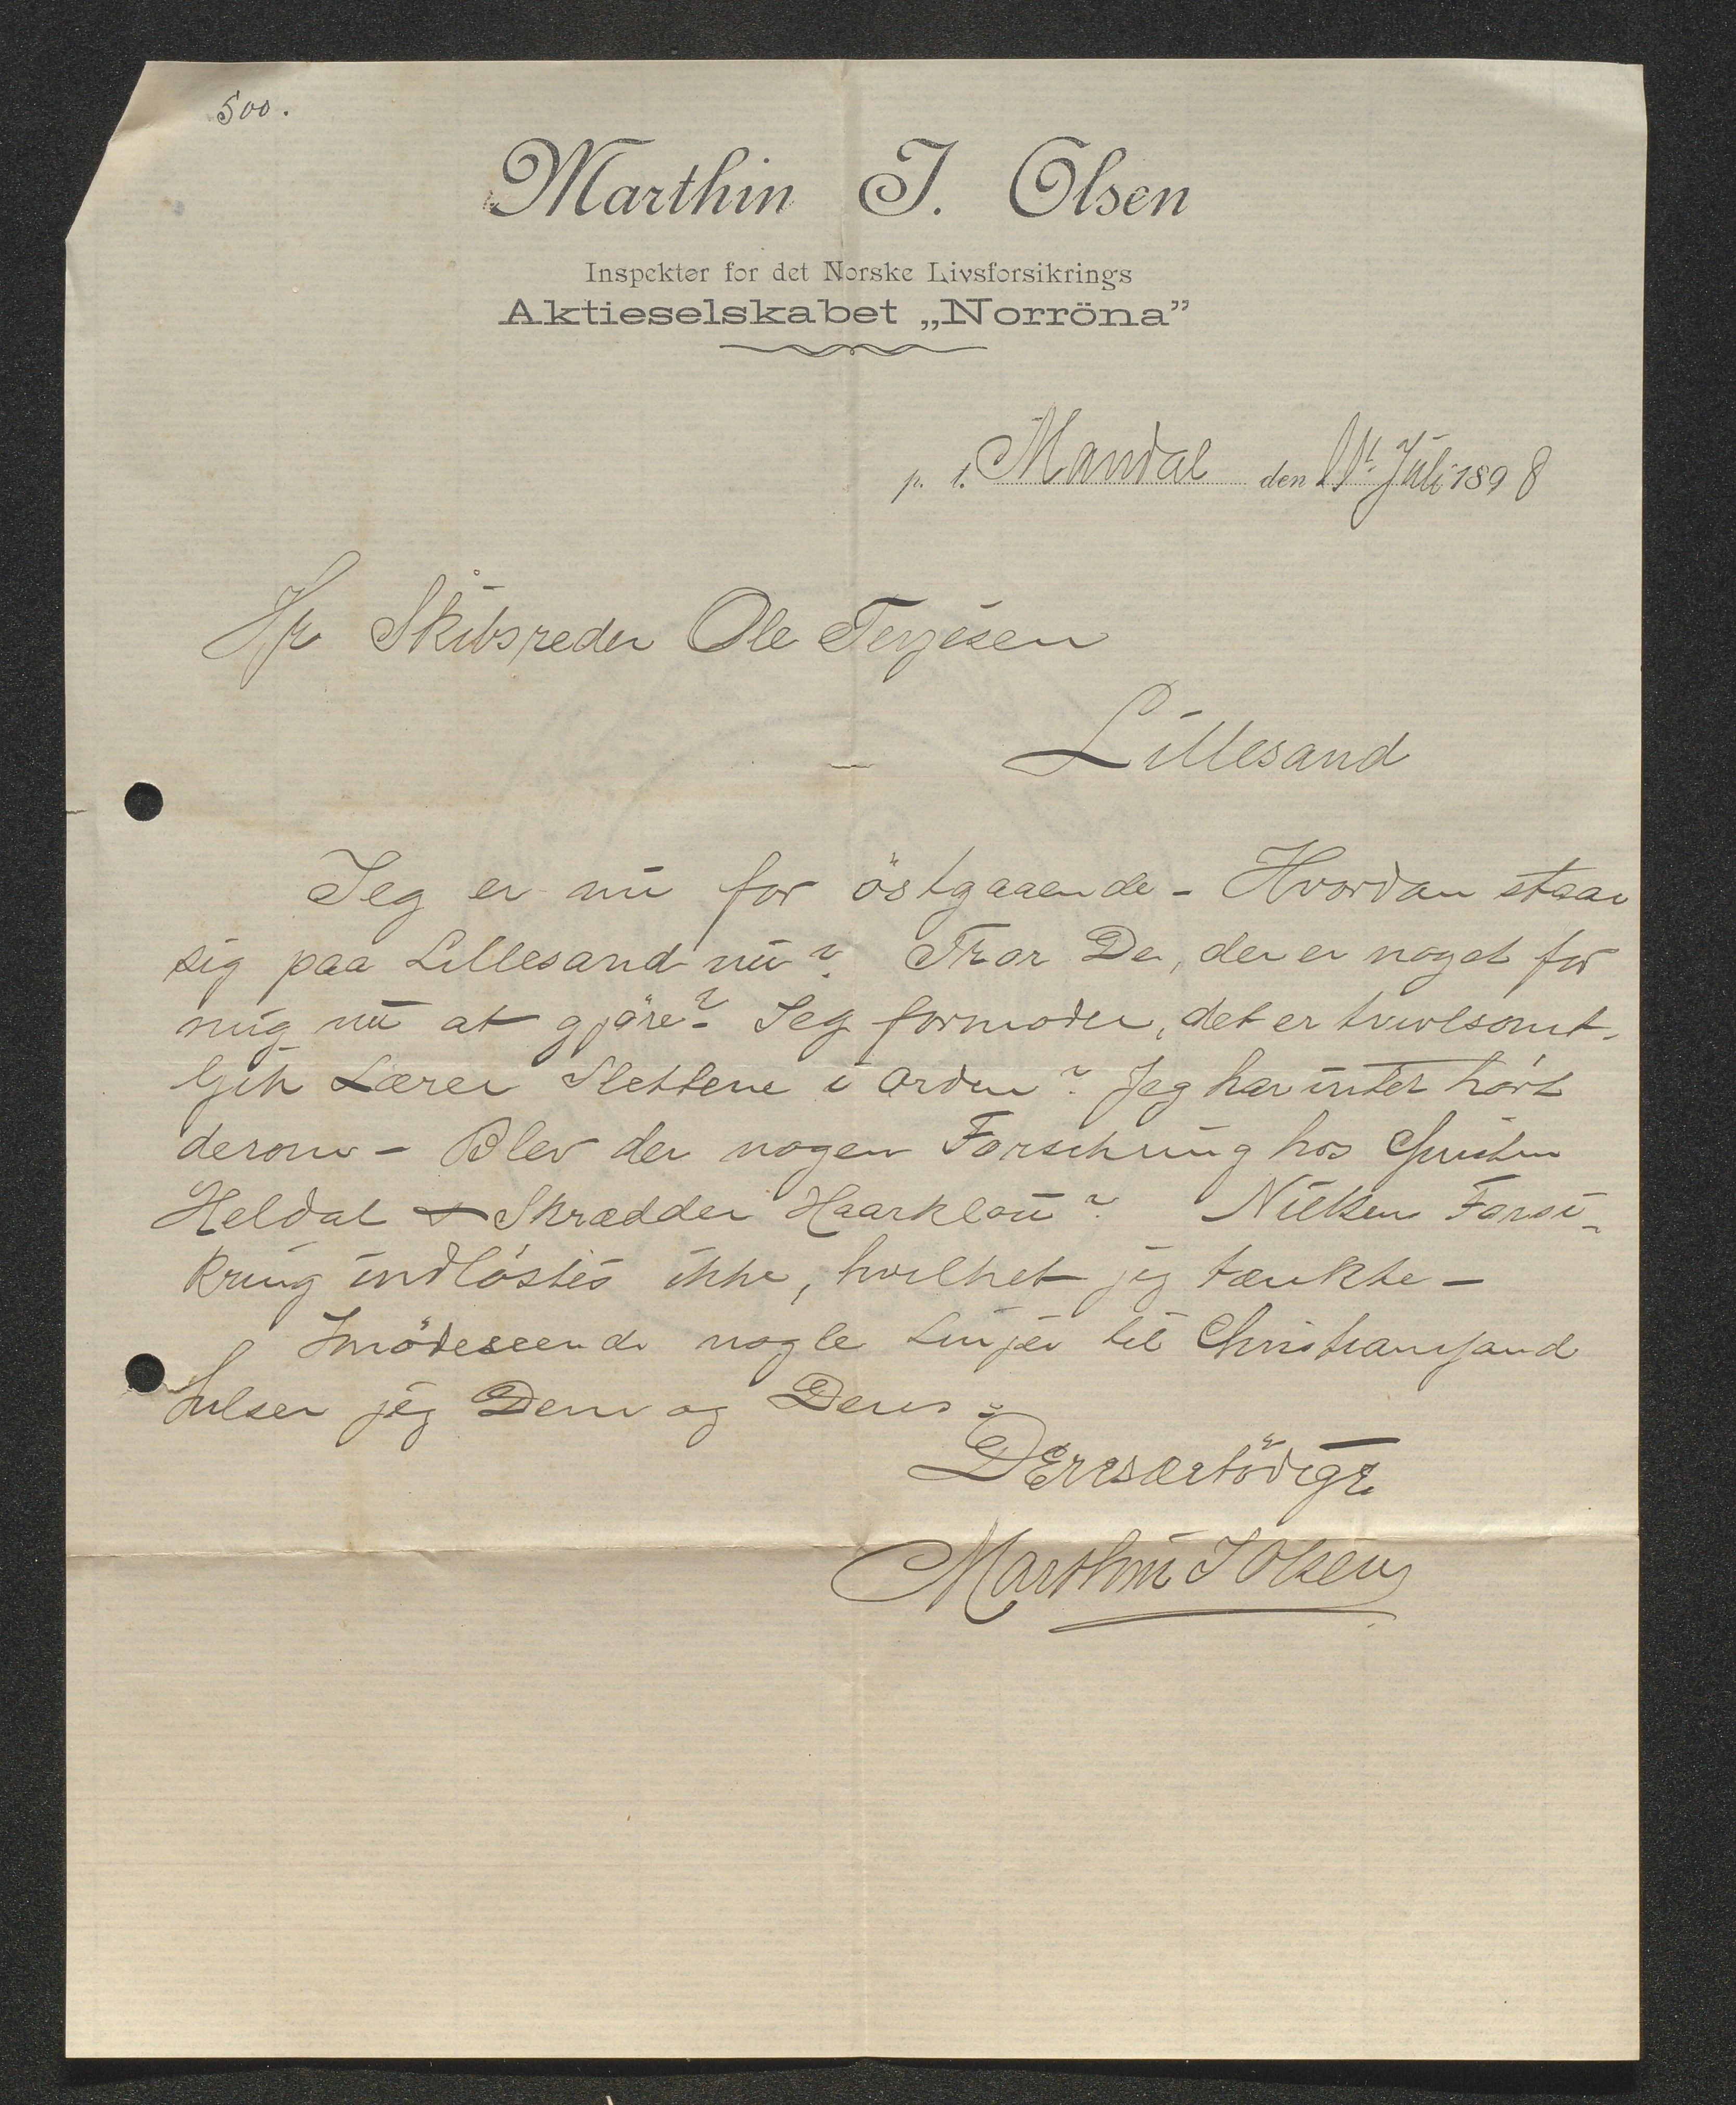 500.
Marthin J. Olsen
Inspektør for det Norske Livsforsikrings
Aktieselskabet „Norröna”
p. t. Mandal den 11t Juli 1898
Hr Skibsreder Ole Terjesen
Lillesand
Jeg er nu for östgaaende - Hvordan staar
sig paa Lillesand nu? Tror De, der er noget for
mig nu at gjöre? Jeg formoder, det er tvivlsomt.
Gik Lærer Slettene i Orden? Jeg har intet hört
derom - Blev der nogen Forsikring hos
Heldal & Skrædder Haarklou? Nielsen Forsi-
kring indlöstes ikke, hvilket jeg tænkte -
Imödeseende nogle Linjer til Christiansand
hilser jeg Dem og Deres.
Deresærbödigt
Marthin J Olsen